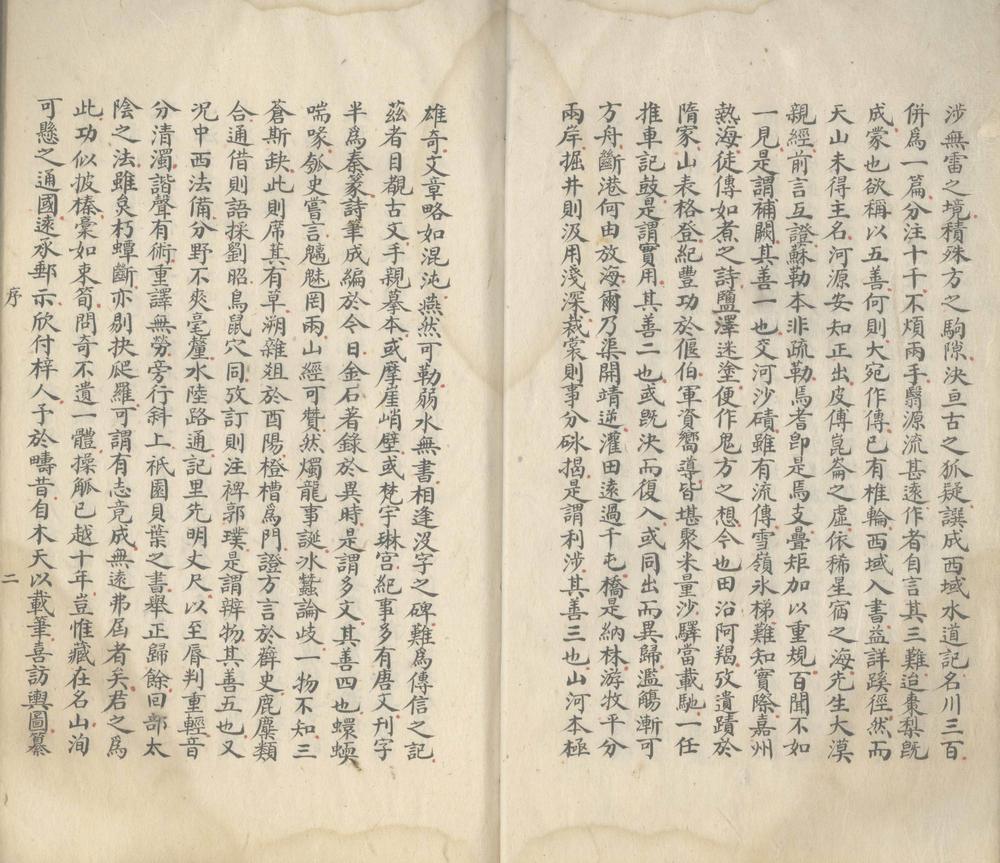 涉無雷之境積殊方之駒隙決亘古之狐疑譔成西域水道記名川三百
併爲一篇分注十千不煩兩手翳源流甚遠作者自言其三難迨棗梨旣
成蒙也欲稱以五善何則大宛作傳已有椎輪西域入書益詳蹊徑然而
天山未得主名河源安知正出皮傅崑崙之虛依稀星宿之海先生大漠
親經前言互證蘇勒本非疏勒焉耆卽是焉支疊矩加以重規百聞不如
一見是謂補闕其善一也交河沙磧雖有流傳雪嶺氷梯難知實際嘉州
熱海徒傳如煮之詩鹽澤迷塗便作鬼方之想今也田沿阿羯攷遺蹟於
隋家山表格登紀豐功於偃伯軍資嚮導皆堪聚米量沙驛當載馳一任
推車記鼓是謂實用其善二也或旣決而復入或同出而異歸濫觴漸可
方舟斷港何由放海爾乃渠開靖逆灌田遠過千屯橋是納林游牧平分
兩岸掘井則汲用淺深裁裳則事分砅揭是謂利涉其善三也山河本極
雄奇文章略如混沌燕然可勒弱水無書相逢沒字之碑難爲傳信之記
茲者目覩古文手親摹本或摩崖峭壁或梵宇琳宫紀事多有唐文刊字
半爲秦篆詩筆成編於今日金石著錄於異時是謂多文其善四也蠉蝡
喘喙瓠史嘗言魑魅罔兩山經可贊然燭龍事誕氷蠶論歧一物不知三
蒼斯缺此則席萁有草朔雜俎於酉陽橙槽爲門證方言於癖史鹿麋類
合通借則語採劉昭鳥鼠穴同攷訂則注裨郭璞是謂辨物其善五也又
况中西法備分野不爽毫釐水陸路通記里先明丈尺以至脣判重輕音
分清濁諧聲有術重譯無勞旁行斜上祇園貝葉之書舉正歸餘回部太
陰之法雖炱朽蟫斷亦剔抉爬羅可謂有志竟成無遠弗屆者矣君之爲
此功似披榛橐如束筍問奇不遺一體操觚已越十年豈惟藏在名山洵
可懸之通國遠承郵示欣付梓人予於疇昔自木天以載筆喜訪輿圖纂
序
二